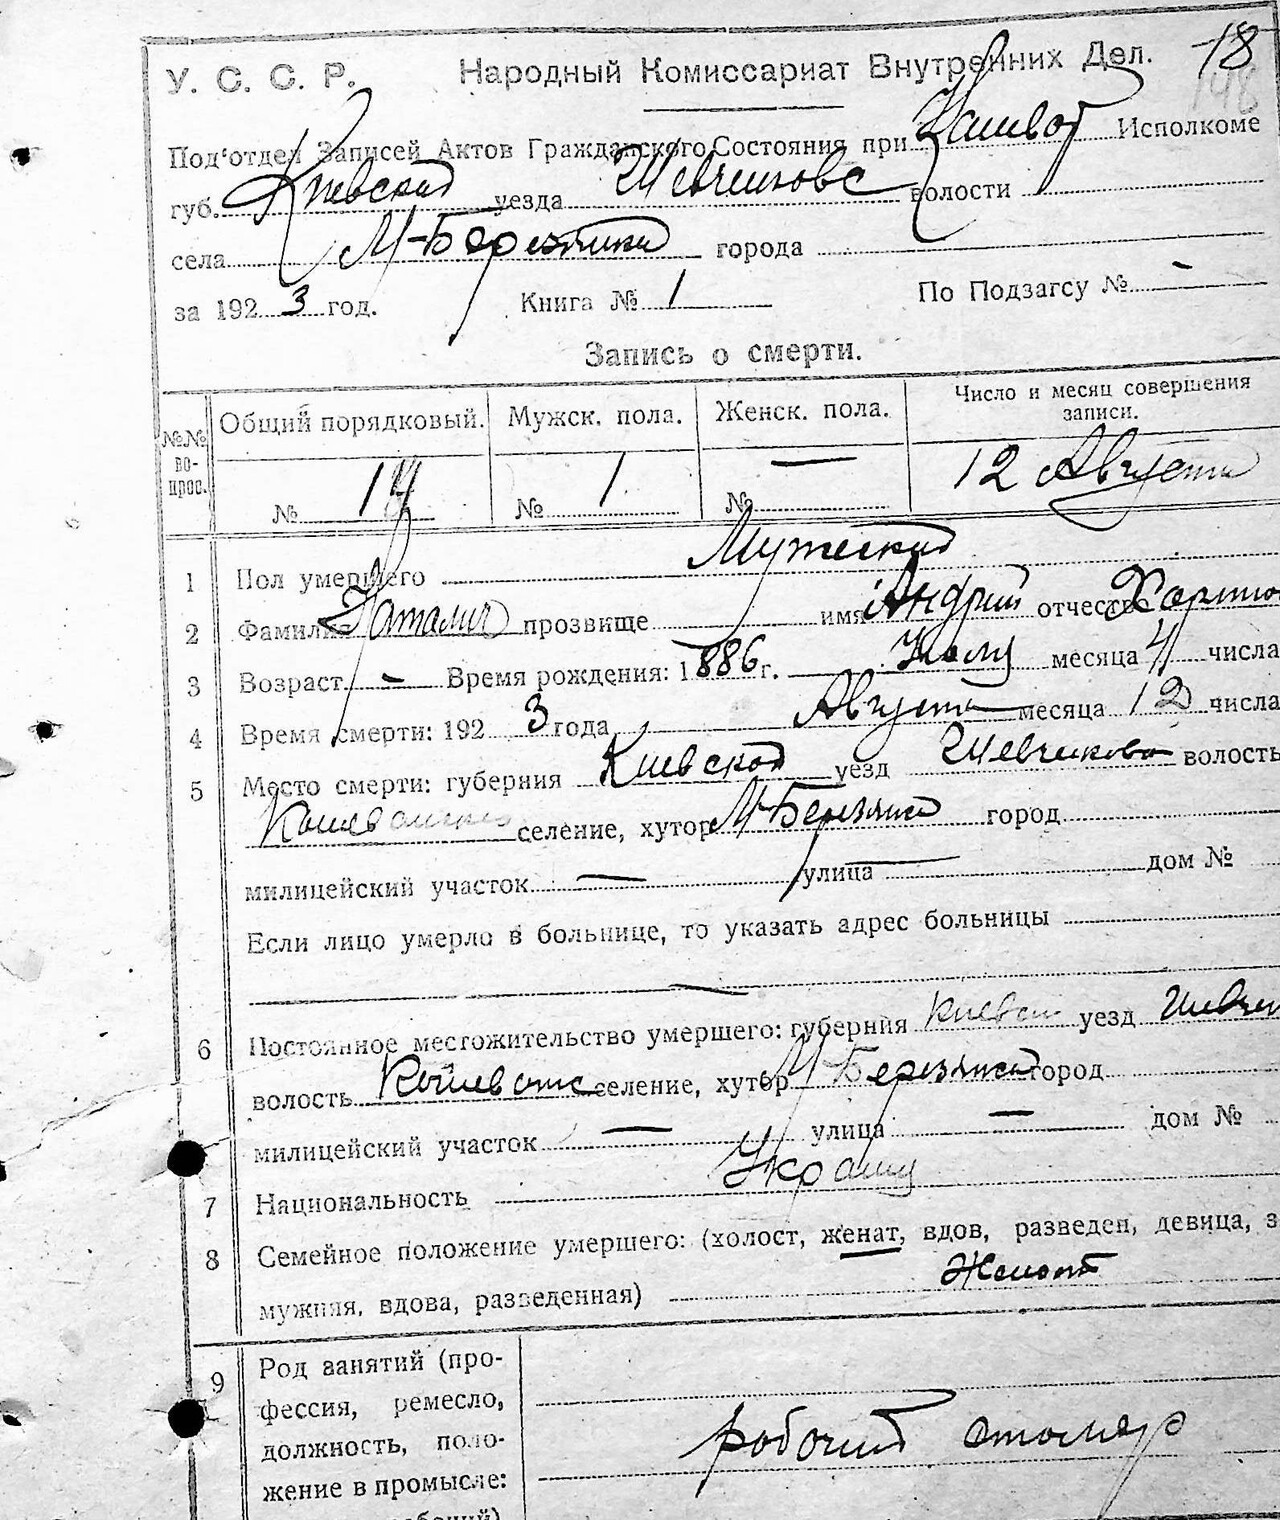 У. С. С. Р. Народный Комиссариат Внутренних Дел. 18
148
Под'отдел Записей Актов Гражданского Состояния при Кошеват Исполкоме
губ. Киевской уезда Шевченковс волости
села М-Березянки города
за 1923 год. Книга № 1 По Подзагсу № -
Запись о смерти.
№№ вопрос. Общий порядковый. Мужск. пола. Женск. пола. Число и месяц совершения записи.
№ № 1 № — 12 Августа
1 Пол умершего Мужеский
2 Фамилия прозвище имя Андрий отчество Харитон
3 Возраст - Время рождения: 1886 г. месяца 4 числа
4 Время смерти: 1923 года Августа месяца 12 числа
5 Место смерти: губерния Киевской уезд Шевченково волость
селение, хутор М-Березянка город
милицейский участок — улица — дом №
Если лицо умерло в больнице, то указать адрес больницы
—
6 Постоянное местожительство умершего: губерния Киевск уезд Шевчен
волость Кошеватс селение, хутор М Березянка город
милицейский участок — улица — дом №
7 Национальность
8 Семейное положение умершего: (холост, женат, вдов, разведен, девица, з
мужняя, вдова, разведенная) Женат
9 Род занятий (про-
фессия, ремесло,
должность, поло- рабочий столяр
жение в промысле: